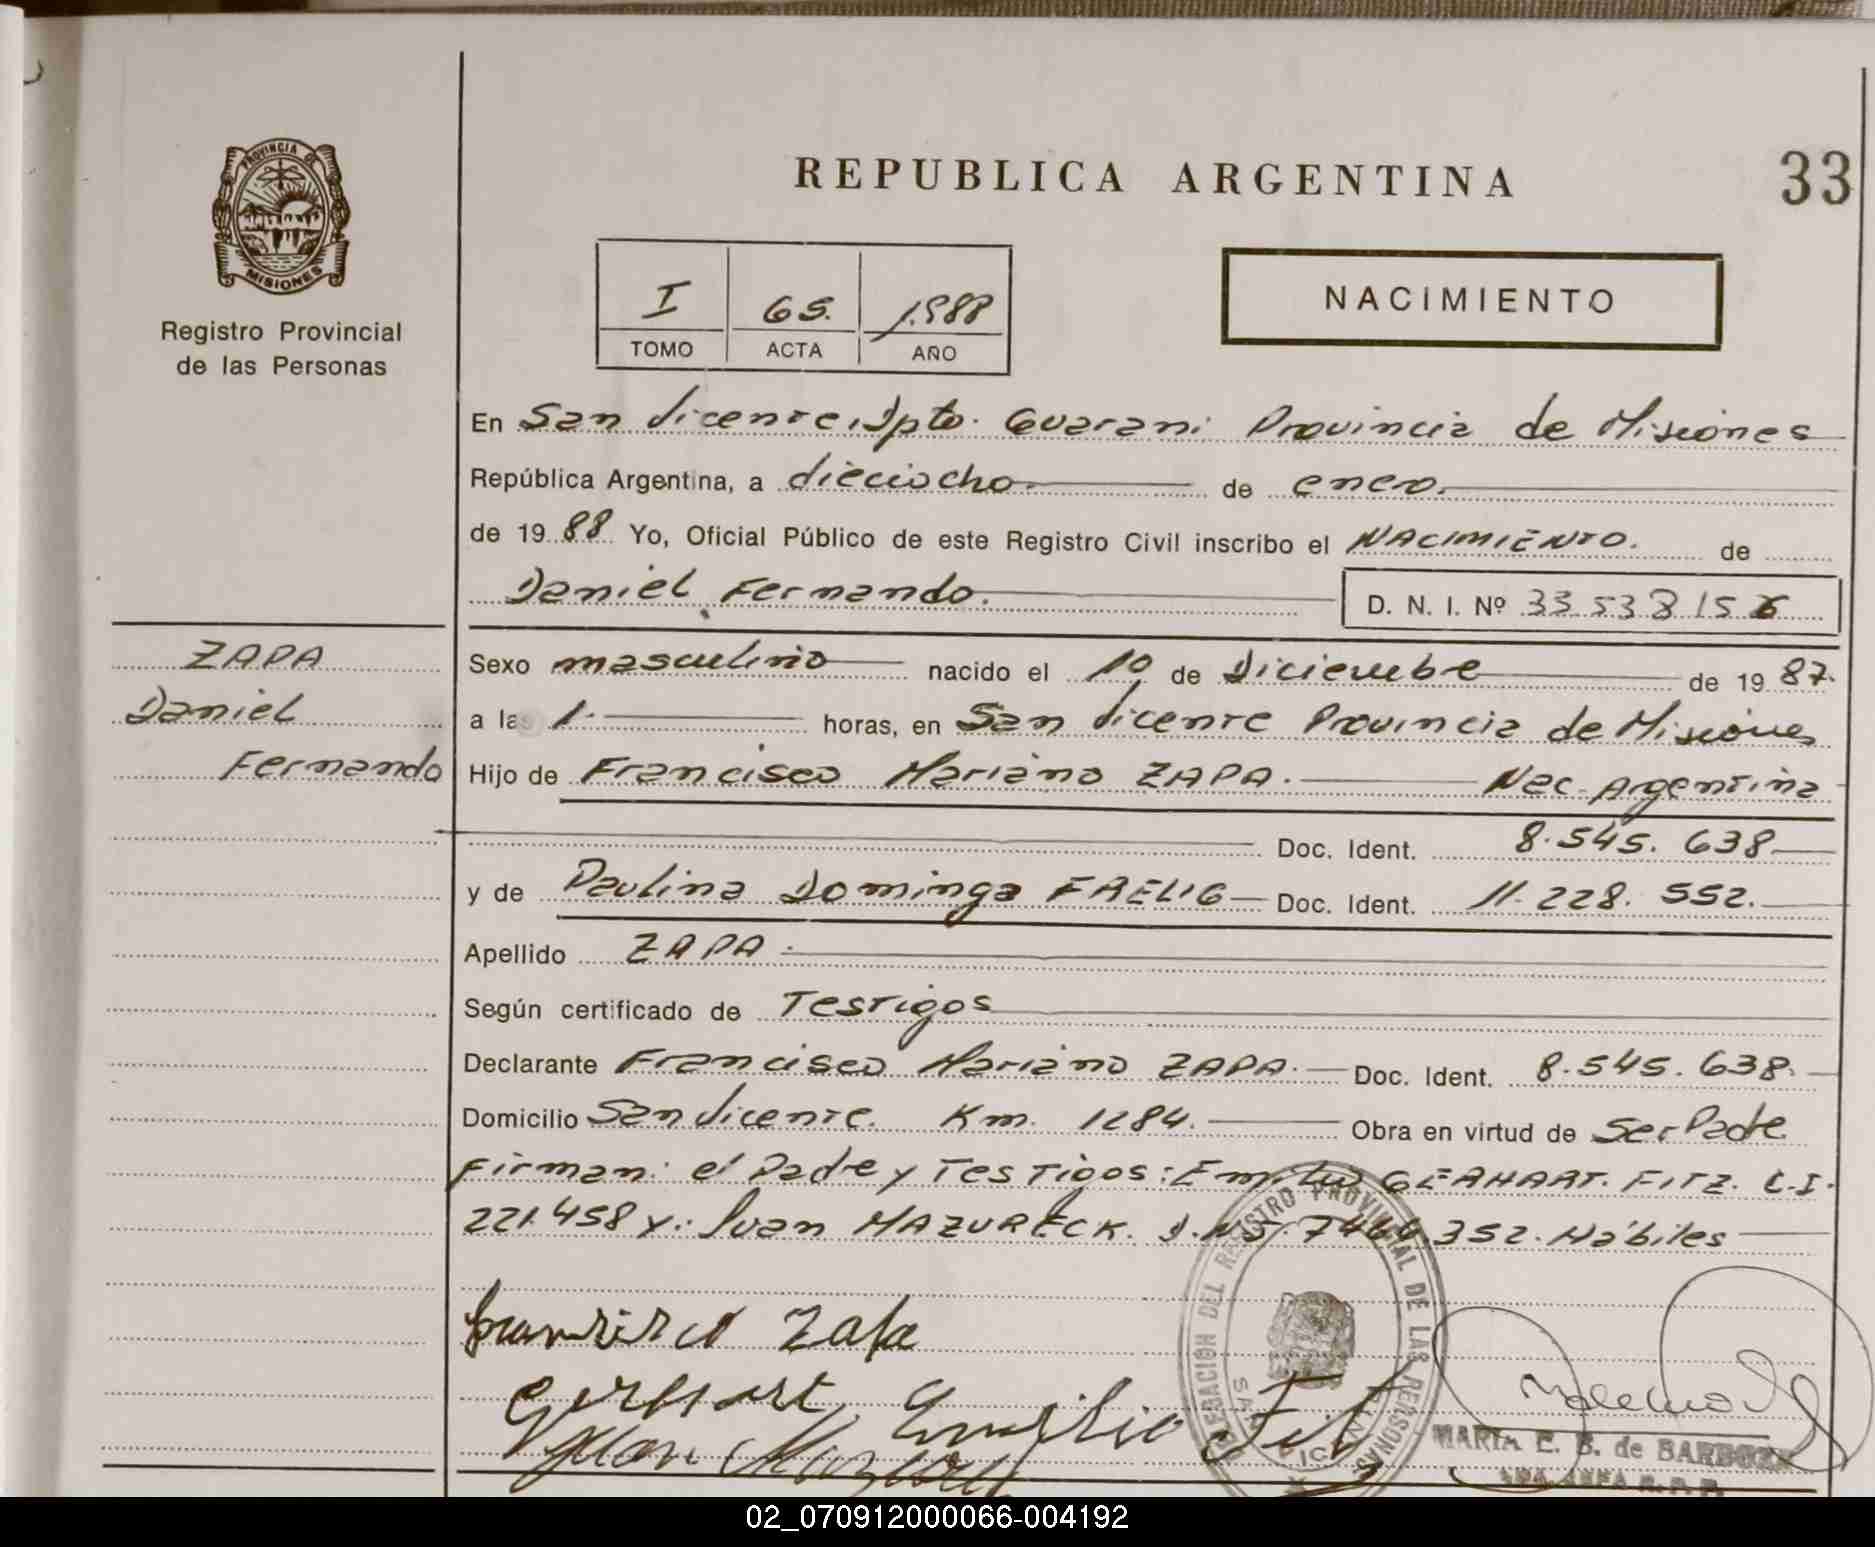 REPUBLICA ARGENTINA
33
PROVINCIA DE
MISIONES
Registro Provincial
de las Personas
I 65. 1.988
TOMO ACTA AÑO
NACIMIENTO
En San Vicente, Dpto. Guarani Provincia de Misiones
República Argentina, a dieciocho. de enero.
de 19 88 Yo, Oficial Público de este Registro Civil inscribo el NACIMIENTO. de
Daniel Fernando. D. N. I. Nº 33 538 156
ZAPA
Daniel
Fernando
Sexo masculino nacido el 10 de Diciembre de 19 87.
a las 1. horas, en San Vicente Provincia de Misiones
Hijo de Francisco Mariano ZAPA. Nac. Argentina
Doc. Ident. 8.545.638
y de Paulina Dominga FAELIG Doc. Ident. 11.228.552.
Apellido ZAPA.
Según certificado de Testigos
Declarante Francisco Mariano ZAPA. Doc. Ident. 8.545.638.
Domicilio San Vicente. Km. 1284. Obra en virtud de Ser Padre
Firman: el Padre y Testigos: Emilio GERHART. FITZ. C.I.
221.458 y: Juan MAZURECK. D.N.I. 7.464.352. Hábiles
Francisco Zapa
Gerhart Emilio Fit
Juan
DELEGACION DEL REGISTRO PROVINCIAL DE LAS PERSONAS
MARIA E. B. de BARBOZA